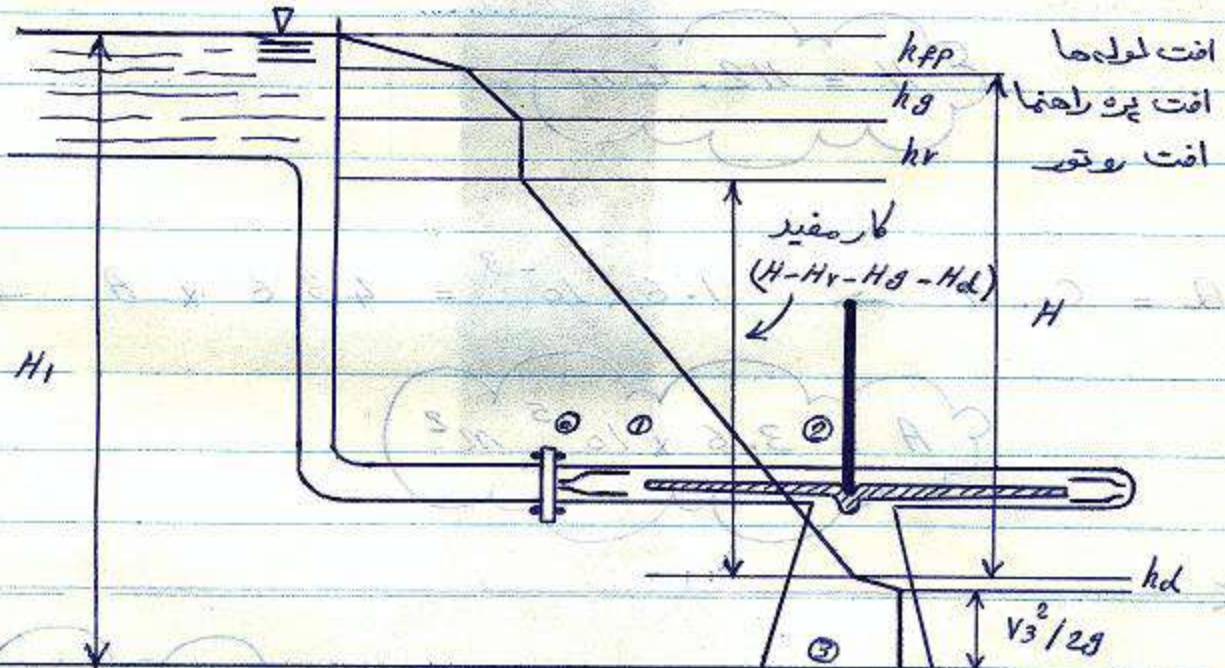 hfp افت لوله‌ها
hg افت پره راهنما
hr افت روتور
کار مفید
(H-Hr-Hg-Hd)
H
H1
⓪ ① ②
hd
V3²/2g
③